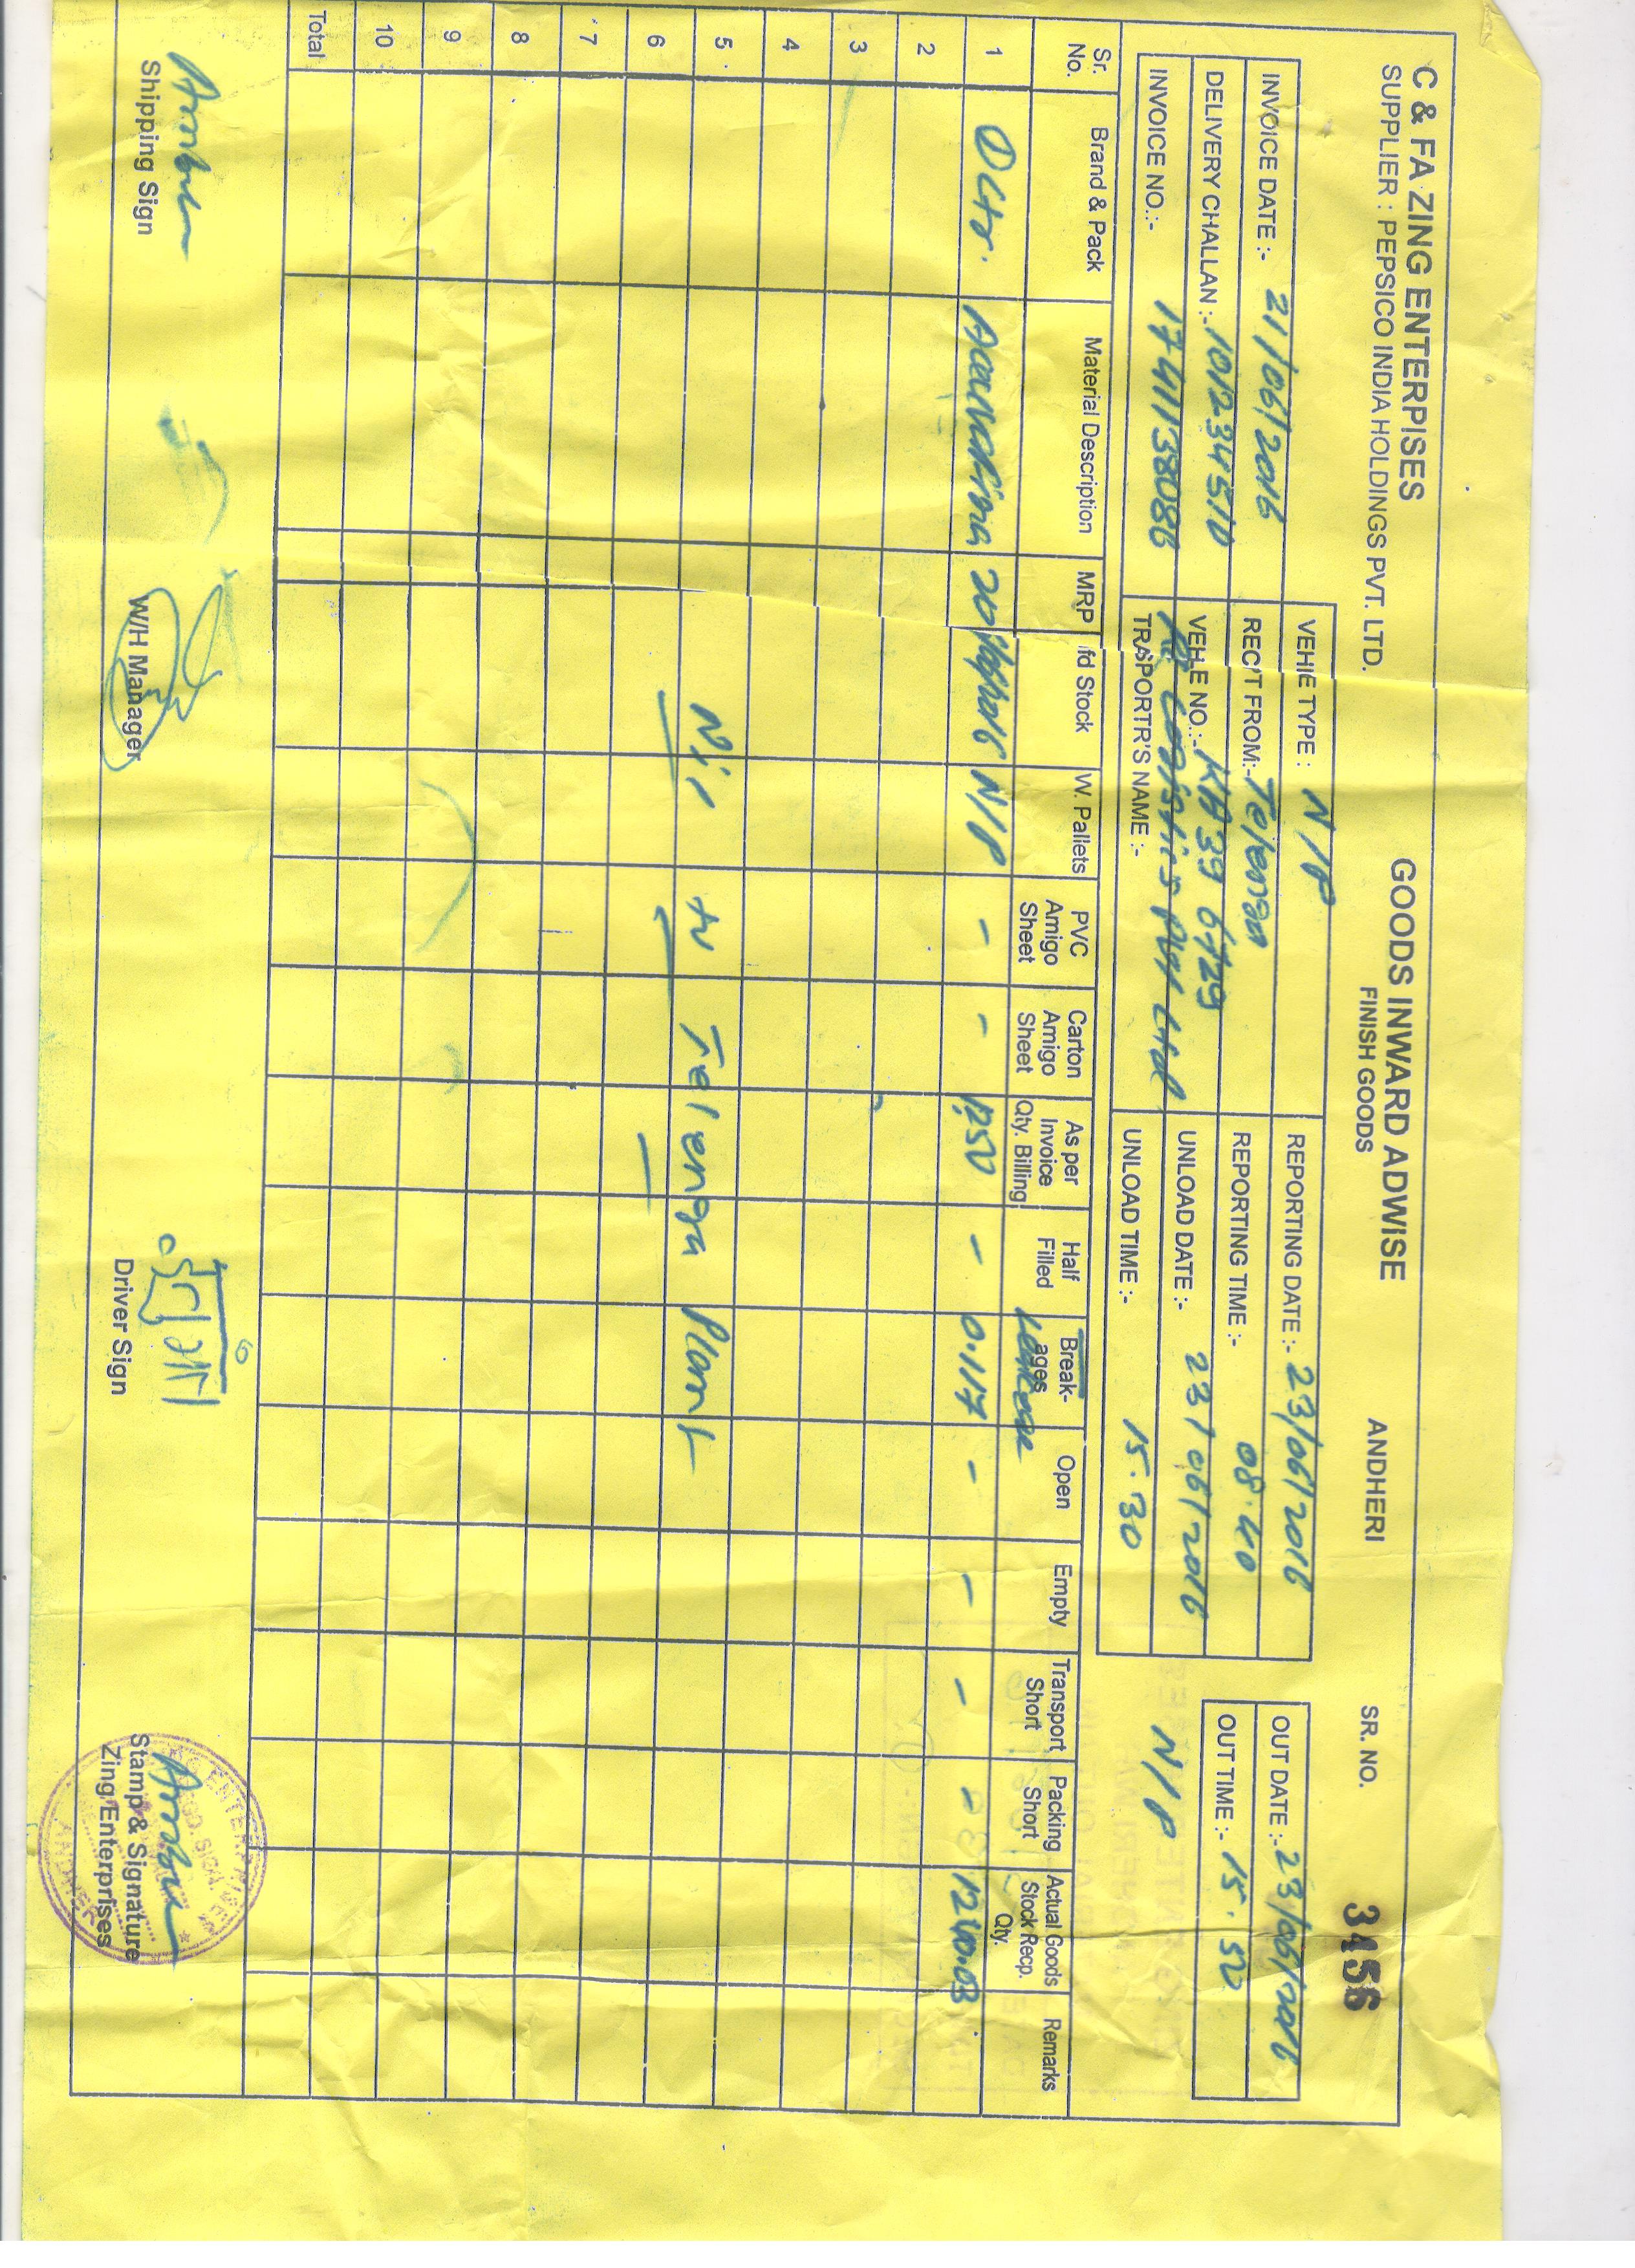 C & FA ZING ENTERPISES
SUPPLIER : PEPSICO INDIA HOLDINGS PVT. LTD.
GOODS INWARD ADWISE
FINISH GOODS
ANDHERI
SR. NO. 3456
INVOICE DATE :- 21/06/2016
DELIVERY CHALLAN :- 101234510
INVOICE NO.:- 1741138086
VEHIE TYPE : N/P
REC'T FROM:- Telensa
VEHLE NO.:- KA39 6729
TRASPORTR'S NAME :- Logistics Pvt Ltd
REPORTING DATE :- 23/06/2016
REPORTING TIME :- 08.40
UNLOAD DATE :- 23/06/2016
UNLOAD TIME :- 15.30
OUT DATE :- 23/06/2016
OUT TIME :- 15.50
N/P
Sr. No. Brand & Pack Material Description MRP fd Stock W. Pallets PVC Amigo Sheet Carton Amigo Sheet As per Invoice Qty. Billing Half Filled Break-ages Leakage Open Empty Transport Short Packing Short Actual Goods Stock Recp. Qty. Remarks
1 Aquafina 20 N/P - - 1250 - 0.117 - - - -
2
3
4
5 Nil tv Telensa Plant
6
7
8
9
10
Total
Shipping Sign
WH Manager
Driver Sign
Stamp & Signature
Zing Enterprises